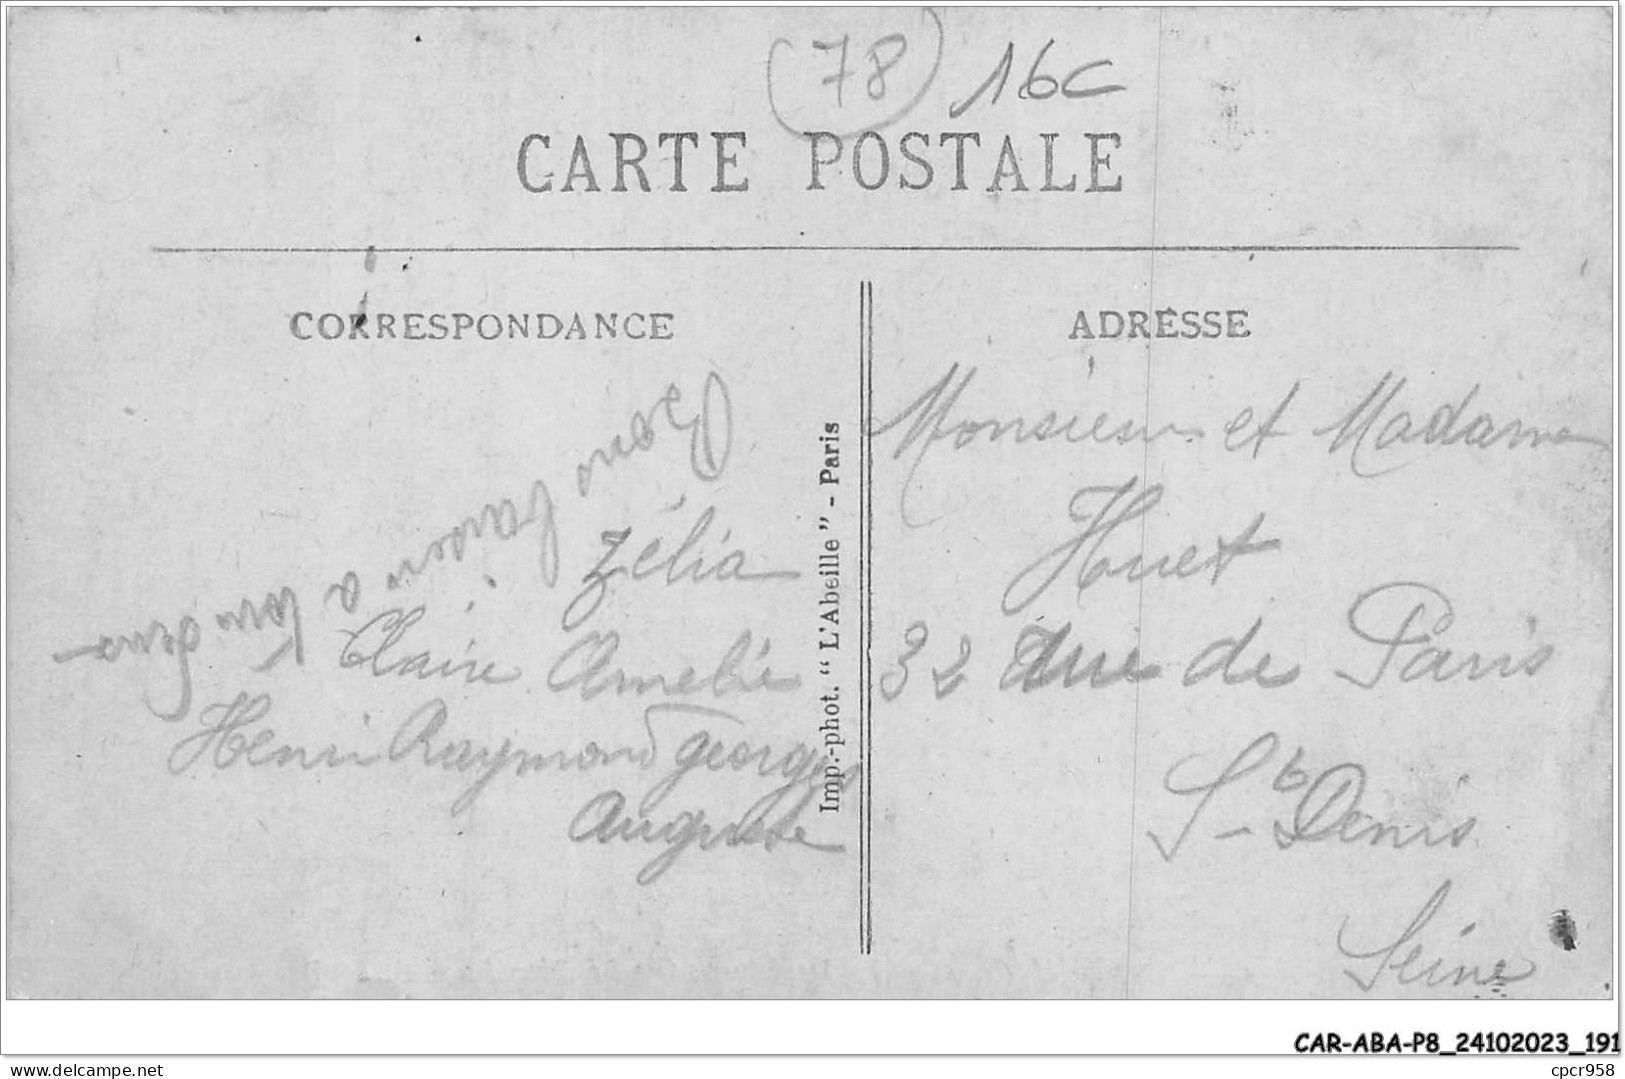 (78) 16C
CARTE POSTALE
CORRESPONDANCE
ADRESSE
Bons baisers a tous deux
Zélia
Claire Amelie
Henri Raymond Georges
Auguste
Imp.-phot. “ L'Abeille ” - Paris
Monsieur et Madame
Huet
32 Rue de Paris
St Denis
Seine
CAR-ABA-P8_24102023_191
delcampe.net
cpcr958